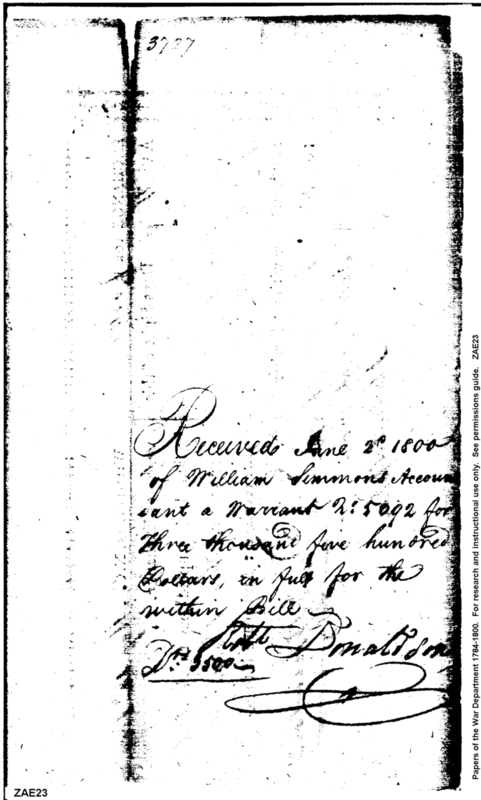 3727
Received June 2d 1800
of William Simmons Accoun
tant a Warrant No: 5092 for
Three thousand five hundred
Dollars, in full for the
within Bill
Robt Donaldson
Drs. 3500
Papers of the War Department 1784-1800. For research and instructional use only. See permissions guide. ZAE23
ZAE23